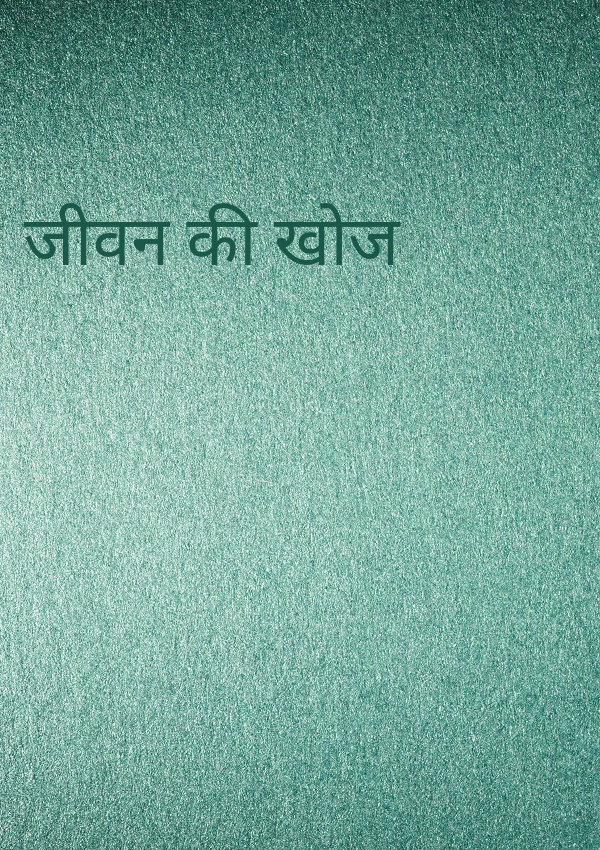 जीवन की खोज